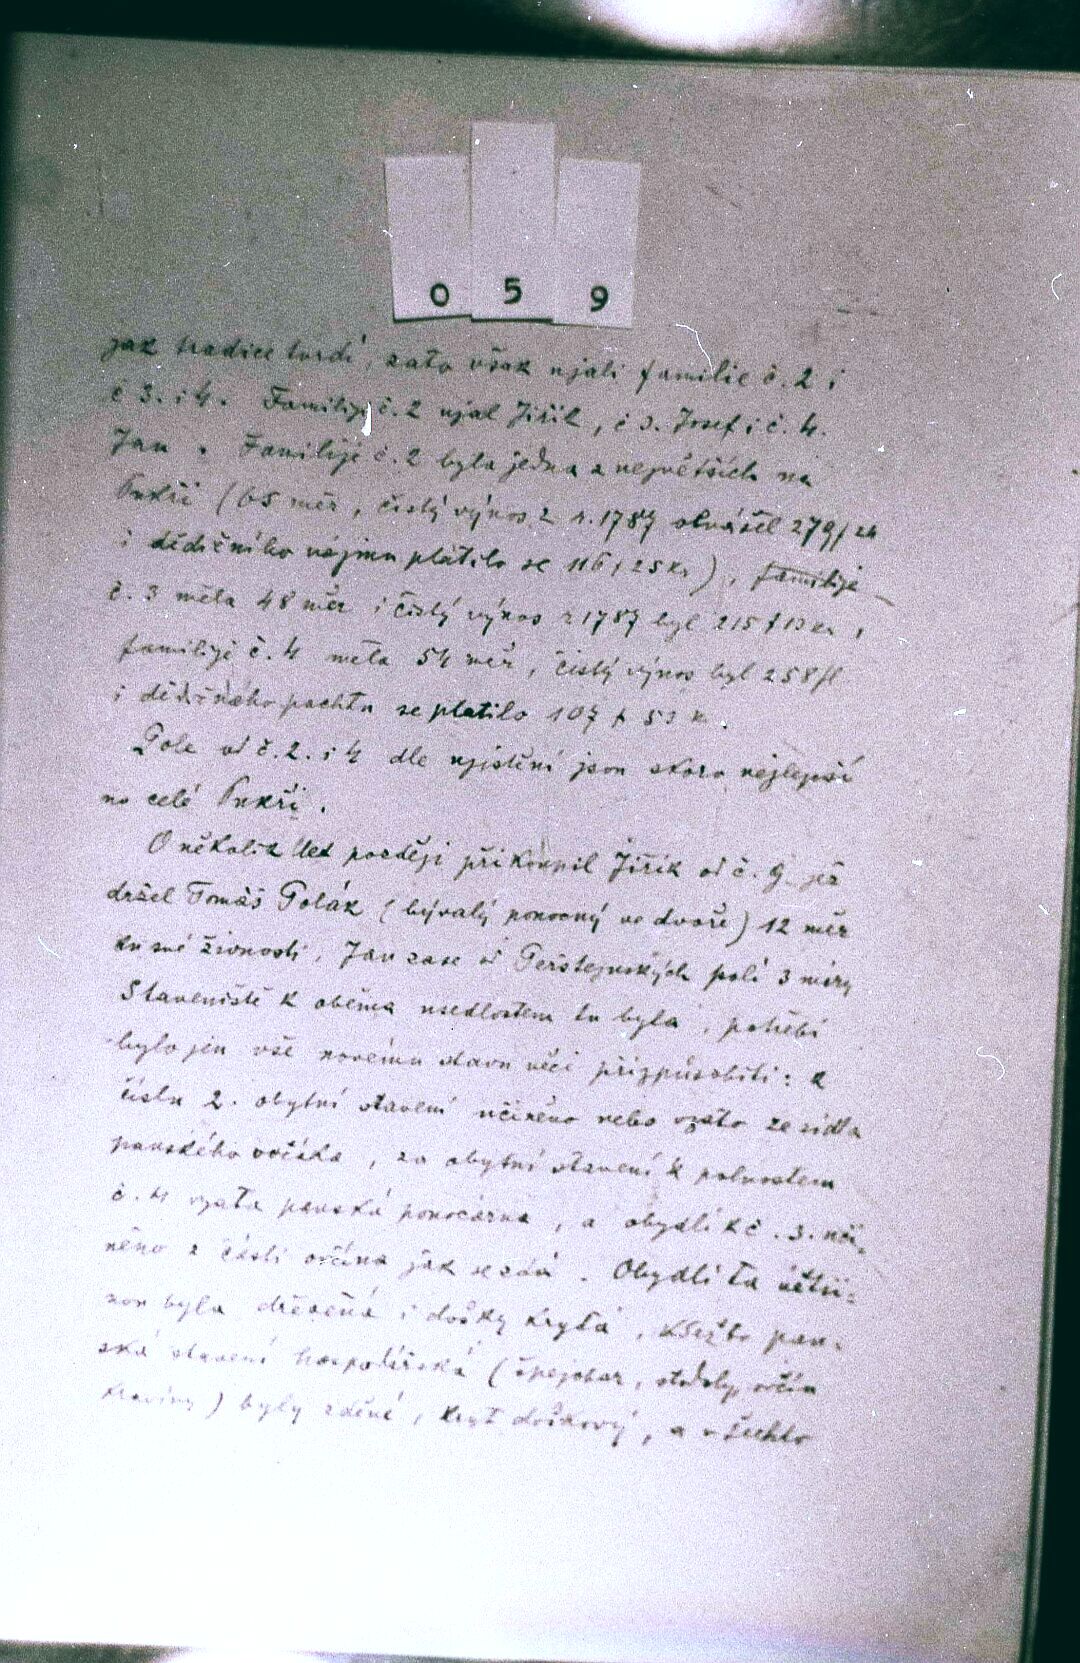 0 5 9
jak tradice tvrdí, zato však ujali familie č. 2 i
č 3. i 4. Familiji č. 2 ujal Jiřík, č 3. Josef i č. 4.
Jan. Familije č. 2 byla jedna z největších na
Pukři (65 měr, čistý výnos z r. 1787 obnášel 279 f 24
i dědičného nájmu platilo se 116, 25 kr), familije
č. 3 měla 48 měr i čistý výnos r 1787 byl 215 f 13 kr,
familije č. 4 měla 54 měr, čistý výnos byl 258 fl
i dědičného pachtu se platilo 107 f 53 k.
Pole od č. 2. i 4 dle ujištění jsou skoro nejlepší
na celé Pukři.
O několik let později přikoupil Jiřík od č. 9 jež
držel Tomáš Polák (bývalý ponocný ve dvoře) 12 měr
ku své živnosti, Jan zase od polí 3 míry
Staveniště k oběma usedlostem tu byla, potřebí
bylo jen vše novému stavu věcí přizpůsobiti: k
číslu 2. obytní stavení učiněno nebo vzato ze sídla
panského, za obytní stavení k polnostem
č. 4 vzata panská ponocárna, a obydlí k č. 3. uči-
něno z části ovčína jak se zdá. Obydlí ta větši-
nou byla dřevěná i došky krytá, kdežto pan-
ská stavení hospodářská (špejchar, stodoly, ovčín
kravíny) byly zděné, kryt doškový, a všechlo